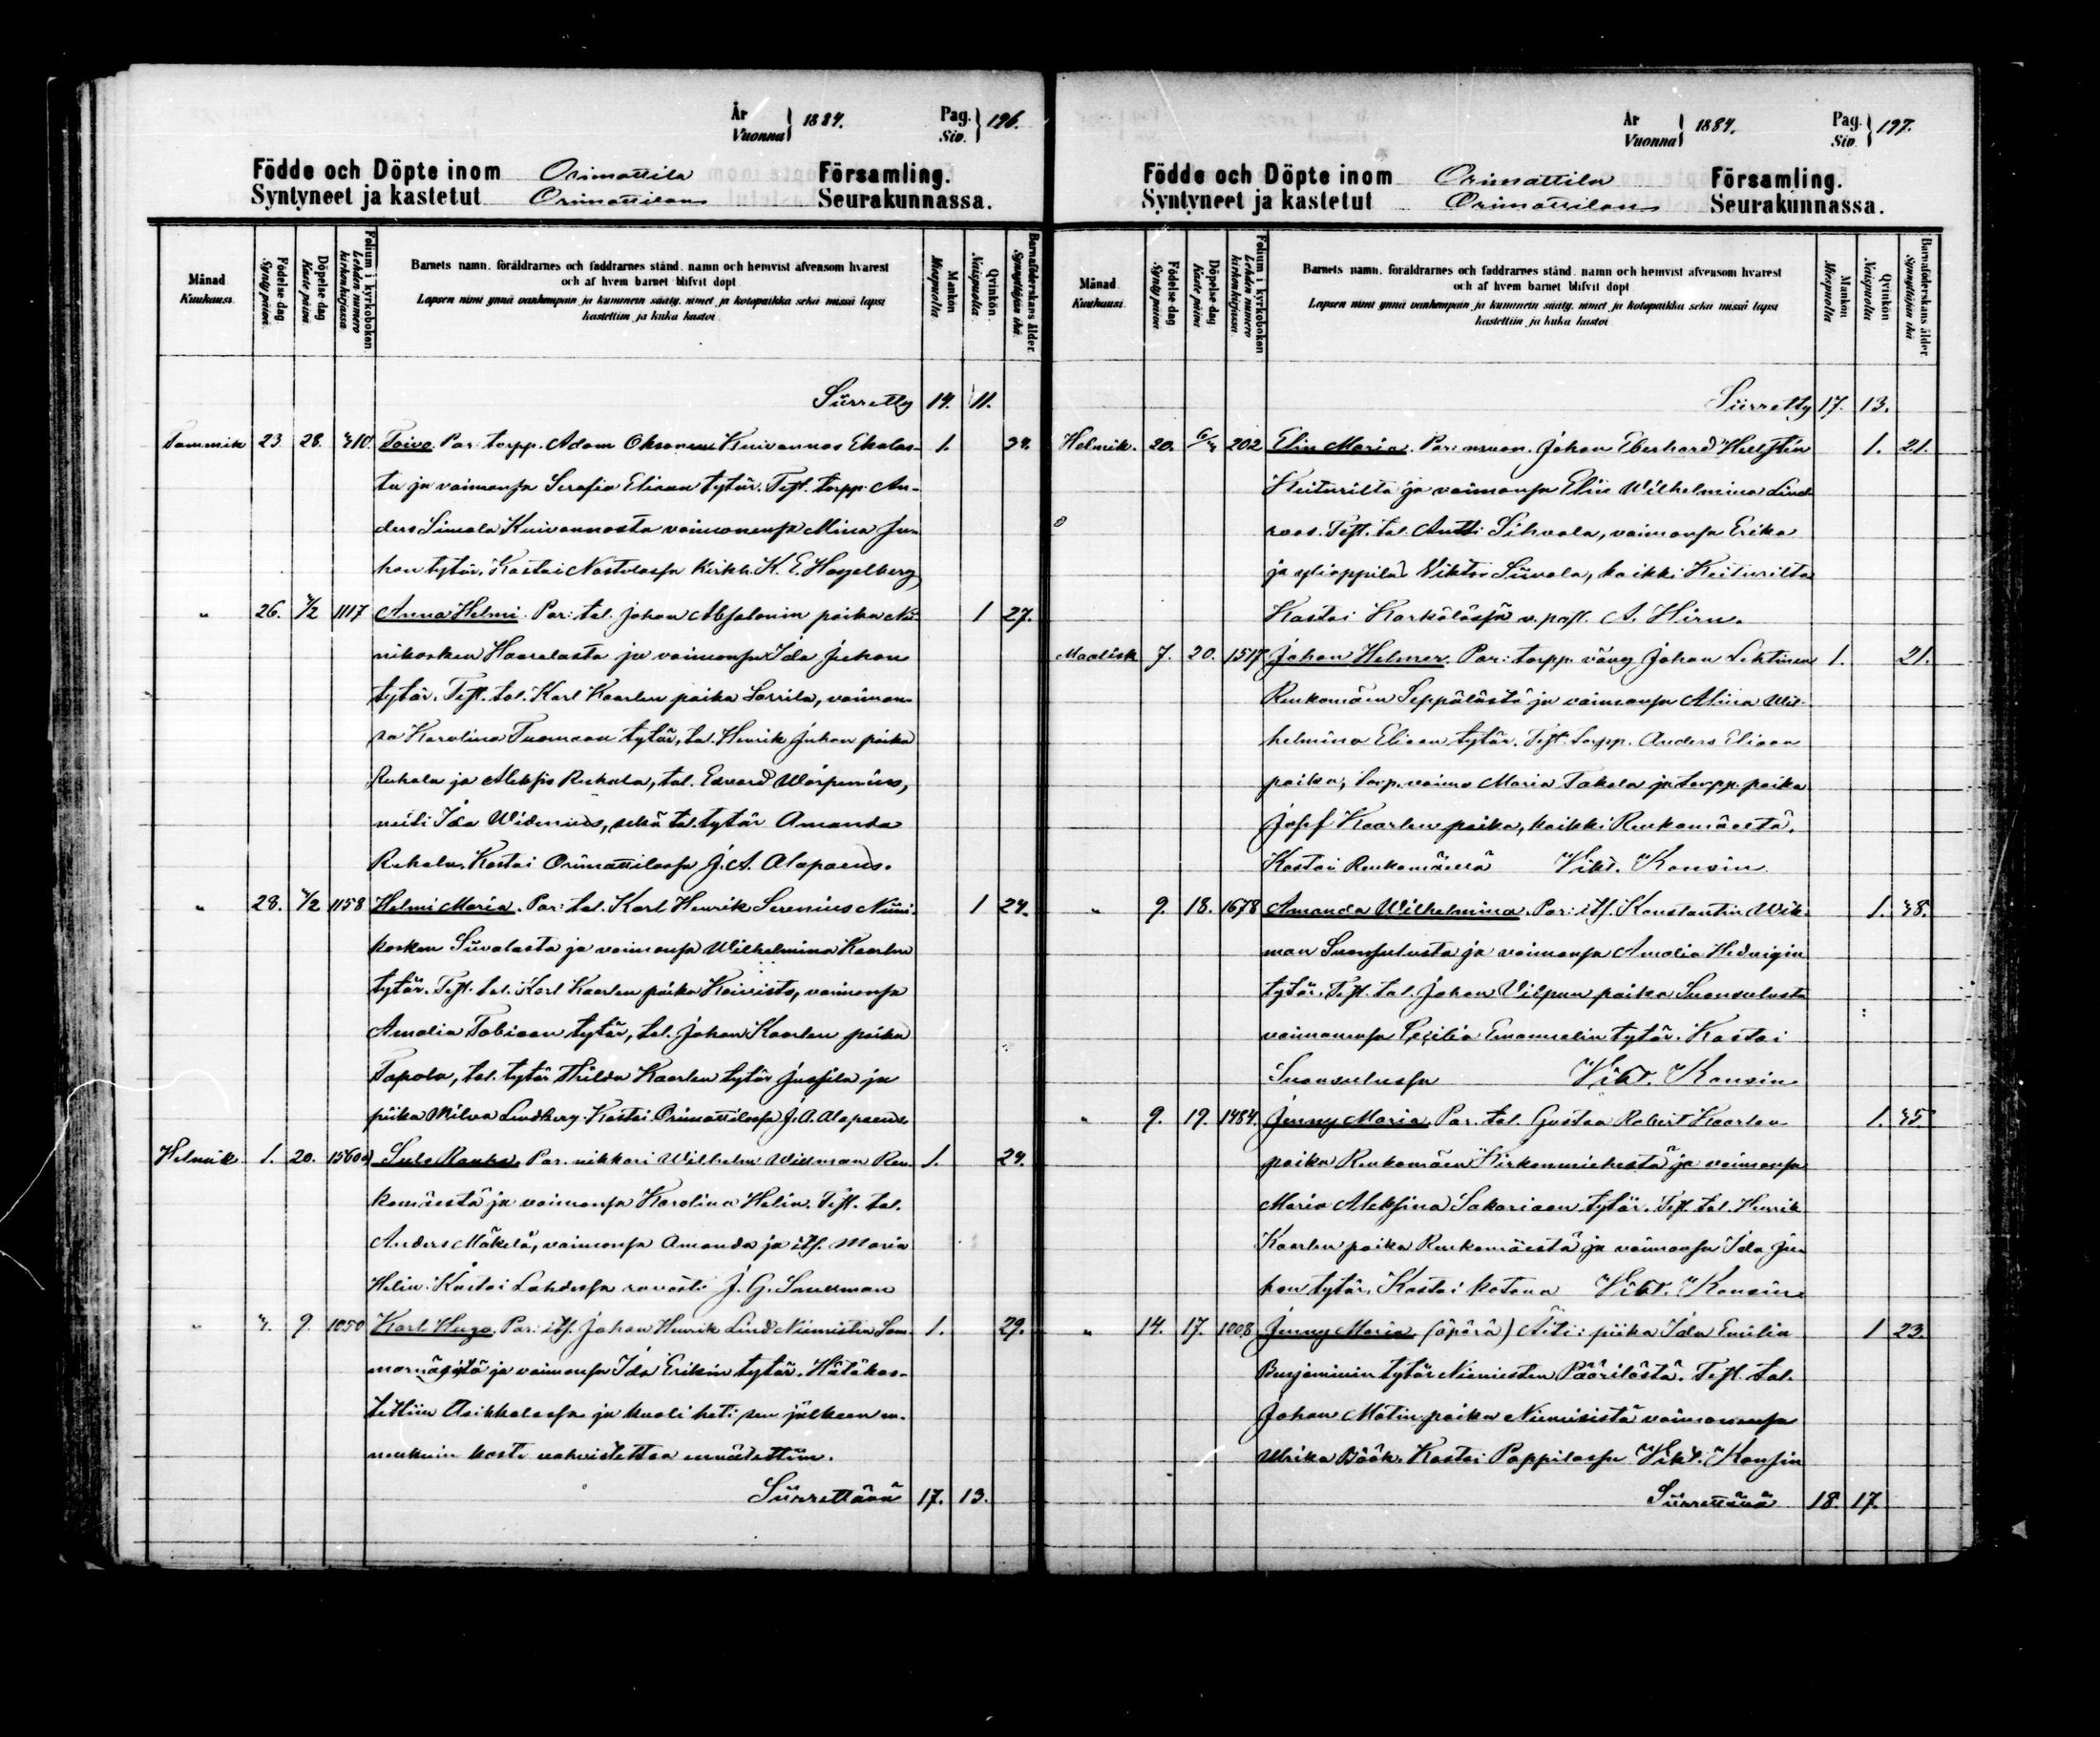 År
Vuonna } 1884.
Pag.
Siv. } 196.
Födde och Döpte inom Orimattila Församling.
Syntyneet ja kastetut Orimattilan Seurakunnassa.
Månad Kuukausi
Födelse dag Synty päivä
Döpelse dag Kaste päivä
Folium i kyrkoboken Lehden numero kirkonkirjassa
Barnets namn, föräldrarnes och faddrarnes stånd, namn och hemvist äfvensom hvarest
och af hvem barnet blifvit döpt
Lapsen nimi ynnä vanhempain ja kummein sääty, nimet ja kotopaikka sekä missä lapsi
kastettiin ja kuka kastoi
Mankön Miespuolia
Qvinkön Naispuolia
Barnaföderskans ålder. Synnyttäjän ikä
Siirretty 14. 11.
Tammik 23. 28. 410. Toivo. Par: torpp. Adam Oksanen Kuivannos Ekolas- 1. 24.
ta ja vaimonsa Serafia Eliaan tytär. Test. torpp. An-
ders Simola Kuivannosta vaimonensa Mina Ju-
hon tytär. Kastoi Nastolassa Kirkh. K. E. Hagelberg
" 26. 4/2 1117 Anna Helmi. Par: tal. Johan Absalonin poika Nii- 1 27.
nikosken Haaralasta ja vaimonsa Ida Juhon
tytär. Test. tal. Karl Kaarlen poika Sorrila, vaimon-
sa Karolina Tuomaan tytär, tal. Henrik Juhon poika
Ruhala ja Aleksis Ruhala, tal. Edvard Wärpenius,
neiti Ida Widenius, sekä tal. tytär Amanda
Ruhala. Kastoi Orimattilassa J. A. Alopaeus.
" 28. 4/2 1158 Helmi Maria. Par: tal. Karl Henrik Serenius Niini- 1 24.
kosken Siivalasta ja vaimonsa Wilhelmina Kaarlen
tytär. Test. tal. Karl Kaarlen poika Koivisto, vaimonsa
Amalia Tobiaan tytär, tal. Johan Kaarlen poika
Tapola, tal. tytär Hilda Kaarlen tytär Jussila ja
piika Milva Lindberg. Kastoi Orimattilassa J. A. Alopaeus
Helmik 1. 20. 1560 Sulo Rauha. Par. nikkari Wilhelm Widman Ren- 1. 24.
komäestä ja vaimonsa Karolina Helin. Test. tal.
Anders Mäkelä, vaimonsa Amanda ja its. Maria
Helin. Kastoi Lahdessa rovasti J. G. Snellman
" 4. 9. 1050 Karl Hugo. Par: its. Johan Henrik Lind Niemistön Sam- 1. 29.
marnäistä ja vaimonsa Ida Erikin tytär. Hätäkas-
tettiin Asikkalassa ja kuoli heti sen jälkeen en-
nenkuin kaste vahvistettaa ennätettiin.
Siirrettävä 17. 13.
År
Vuonna } 1884.
Pag.
Siv. } 197.
Födde och Döpte inom Orimattila Församling.
Syntyneet ja kastetut Orimattilan Seurakunnassa.
Månad Kuukausi
Födelse dag Synty päivä
Döpelse dag Kaste päivä
Folium i kyrkoboken Lehden numero kirkonkirjassa
Barnets namn, föräldrarnes och faddrarnes stånd, namn och hemvist äfvensom hvarest
och af hvem barnet blifvit döpt
Lapsen nimi ynnä vanhempain ja kummein sääty, nimet ja kotopaikka sekä missä lapsi
kastettiin ja kuka kastoi
Mankön Miespuolia
Qvinkön Naispuolia
Barnaföderskans ålder. Synnyttäjän ikä
Siirretty 17. 13.
Helmik. 20. 6/4 202 Elin Maria. Par: Johan Eberhard Hellstén 1. 21.
Keiturilta ja vaimonsa Elin Wilhelmina Lind-
roos. Test. tal. Antti Sihvola, vaimonsa Erika
ja ylioppilas Viktor Siivola, kaikki Keiturilta
Kastoi Kärkölässä v. past. A. Hirn.
Maalisk 7. 20. 1517 Johan Helmer. Par: torpp. vävy Johan Lehtinen 1. 21.
Renkomäen Seppälästä ja vaimonsa Alina Wil-
helmina Eliaan tytär. Test. torpp. Anders Eliaan
poika, torp. vaimo Maria Takala ja torpp. poika
Josef Kaarlen poika, kaikki Renkomäestä.
Kastoi Renkomäessä Vikt. Konsin
" 9. 18. 1678 Amanda Wilhelmina. Par: its. Konstantin Wik- 1. 48.
man Luonsulusta ja vaimonsa Amalia Hedvigin
tytär. Test. tal. Johan Vilpun poika
vaimonensa Cecilia Emanuelin tytär. Kastoi
Vikt. Konsin
" 9. 19. 1484. Jenny Maria. Par. tal. Gustaa Robert Kaarlen 1. 45.
poika Renkomäen Kirkonmiehestä ja vaimonsa
Maria Aleksina Sakariaan tytär. Test. tal. Henrik
Kaarlen poika Renkomäestä ja vaimonsa Ida Ju-
hon tytär. Kastoi kotona Vikt. Konsin
" 14. 17. 1008 Jenny Maria (äpärä) Äiti: piika Ida Emilia 1 23.
Benjaminin tytär Niemisten Päärilästä. Test. tal.
Johan Matin poika Niemisistä vaimonensa
Ulrika Böök. Kastoi Pappilassa Vikt. Konsin
Siirrettävä 18. 17.